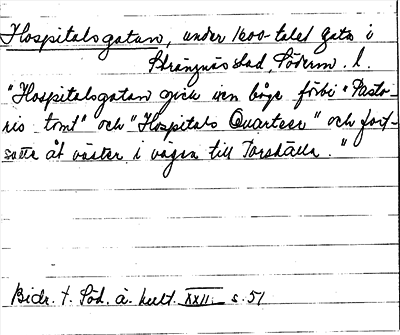 Hospitalsgatan, under 1600-talet gata i
Strängnäs stad, Söderm. l.
"Hospitalsgatan gick i en båge förbi "Pasto-
ris tomt" och "Hospitals Quarteer" och fort-
satte åt väster i vägen till Torshälla."
Bidr. t. Söd. ä. kult. XXII. s. 51